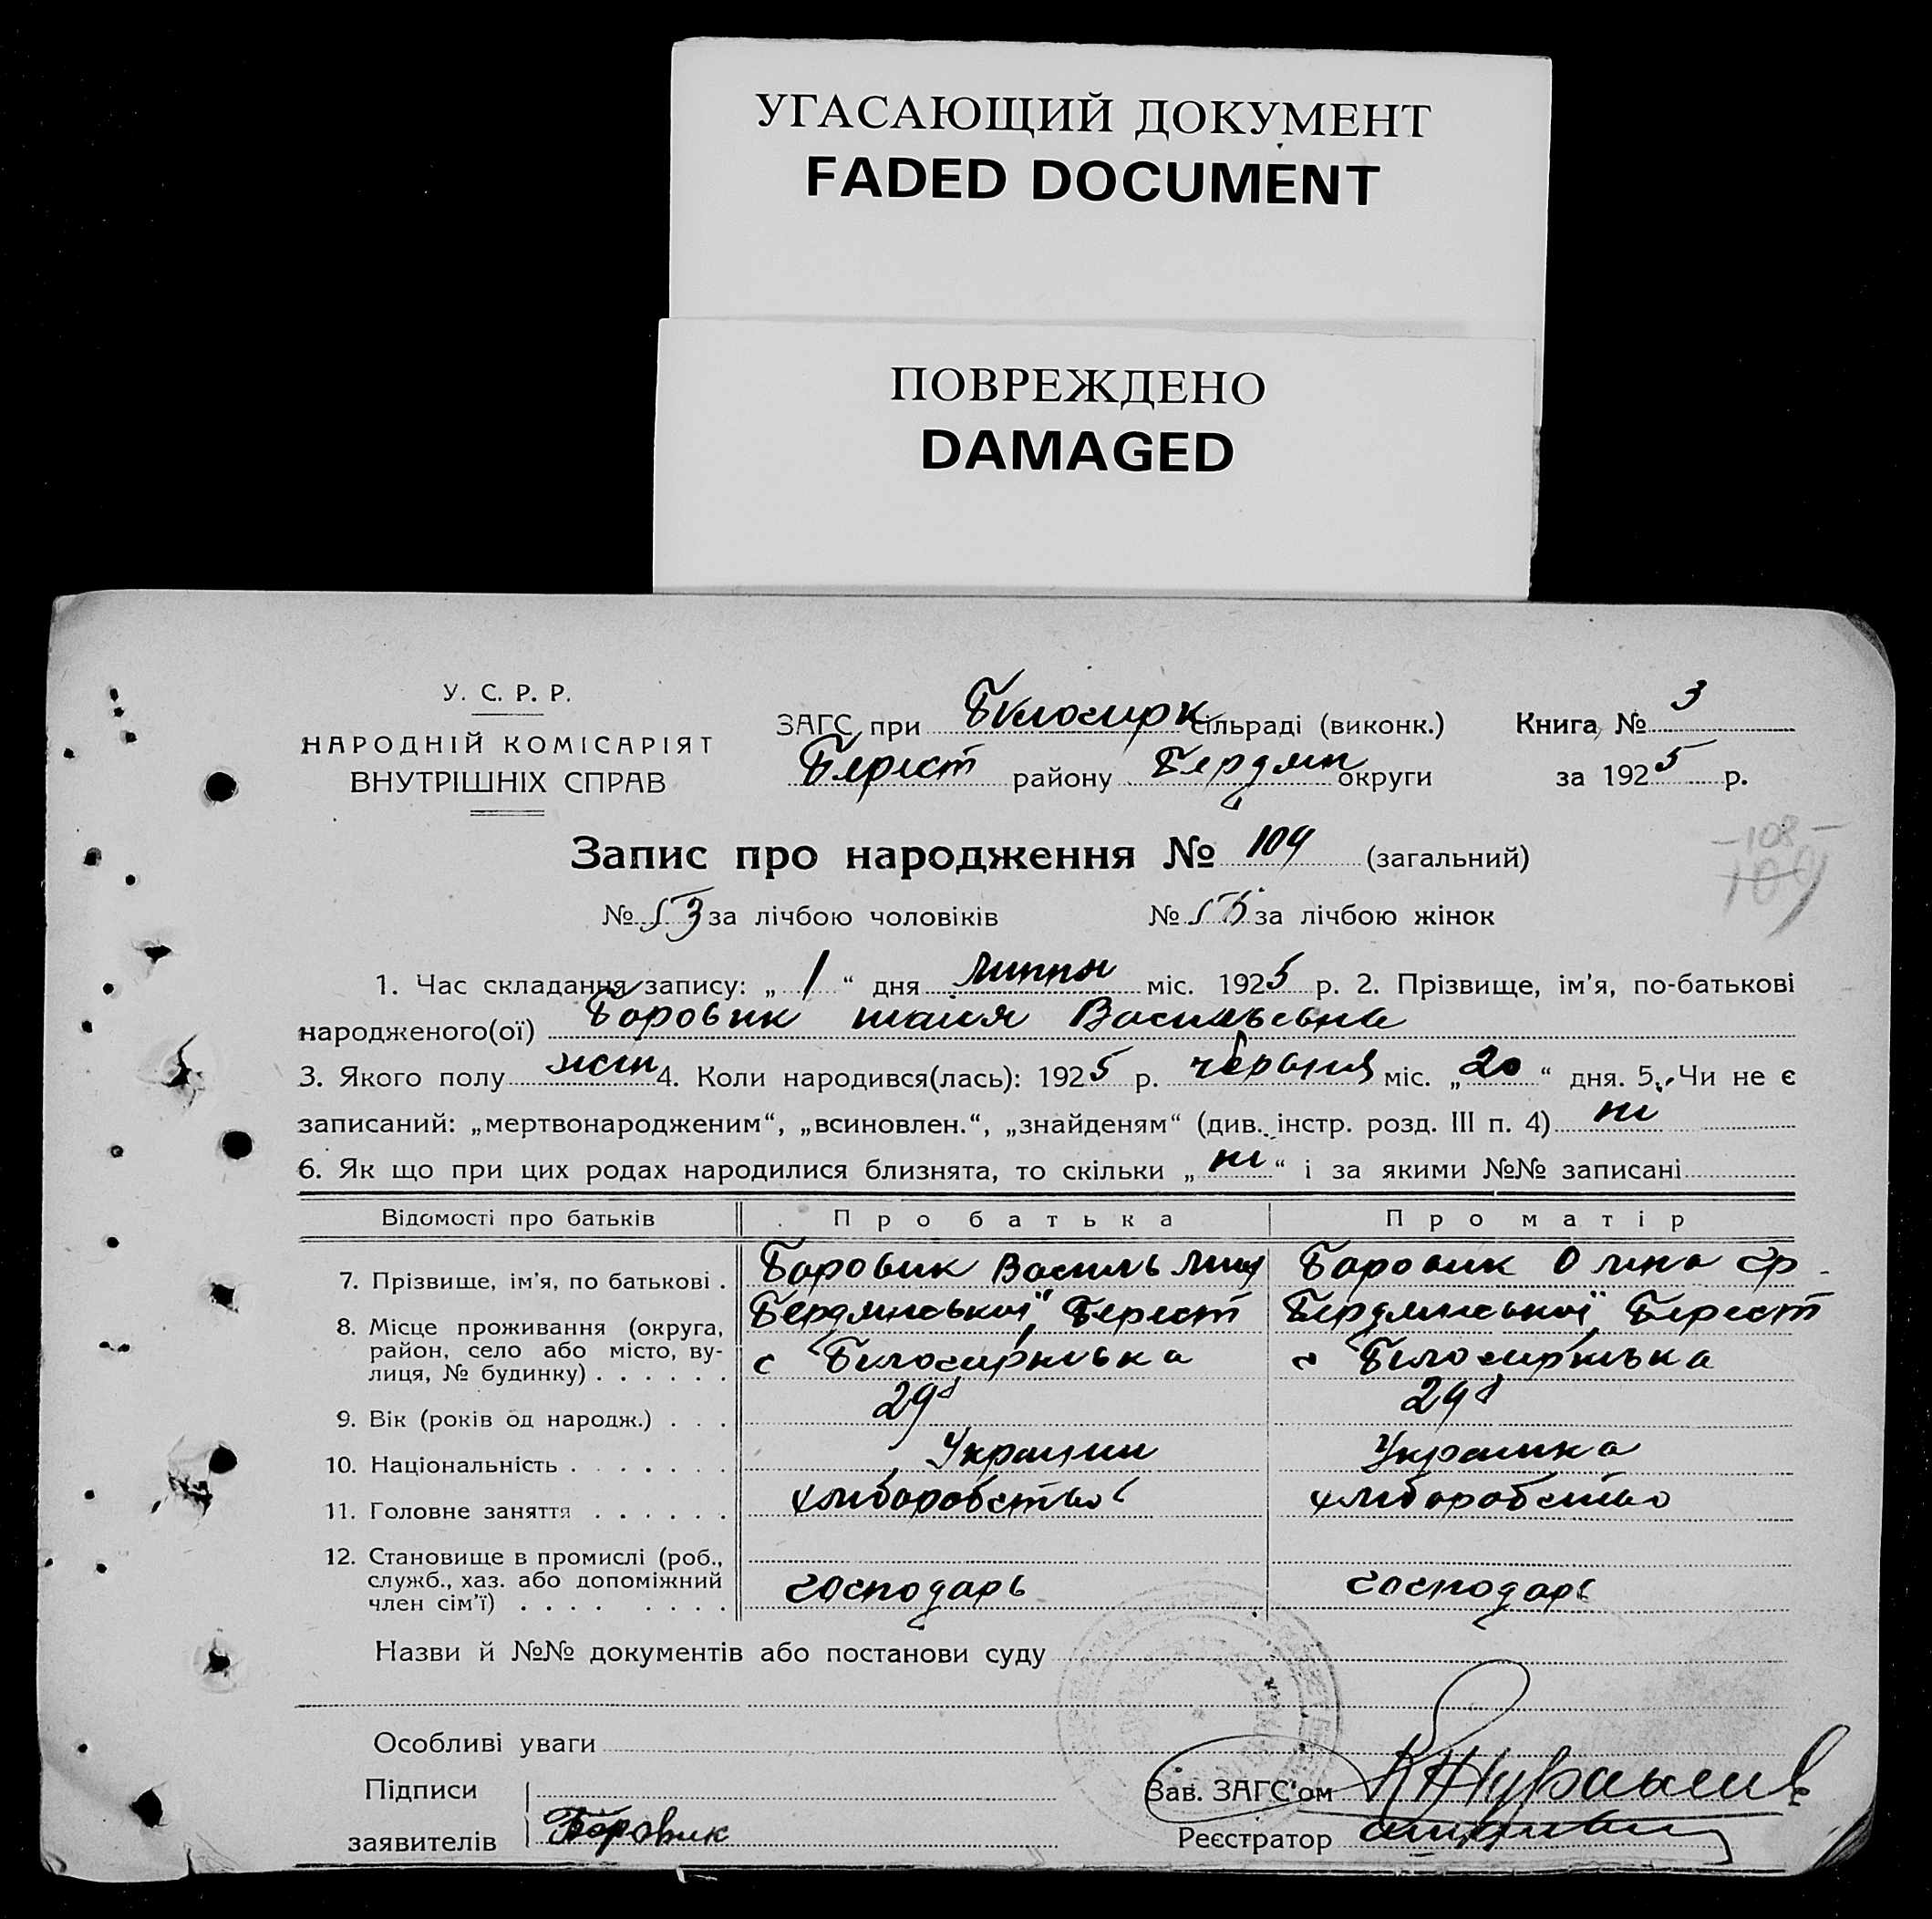 УГАСАЮЩИЙ ДОКУМЕНТ
FADED DOCUMENT
ПОВРЕЖДЕНО
DAMAGED
У. С. Р. Р.
НАРОДНІЙ КОМІСАРІЯТ
ВНУТРІШНІХ СПРАВ
ЗАГС при Білоцирк сільраді (виконк.)
Берест району Бердян округи
Книга № 3
за 1925 р.
Запис про народження № 104 (загальний)
-108-
104
№ 53 за лічбою чоловіків № за лічбою жінок
1. Час складання запису: „ 1 “ дня Липня міс. 1925 р. 2. Прізвище, ім'я, по-батькові
народженого(ої) Боровик Васильевна
3. Якого полу жін 4. Коли народився(лась): 1925 р. червня міс. „ 20 “ дня. 5. Чи не є
записаний: „мертвонародженим“, „всиновлен.“, „знайденям“ (див. інстр. розд. III п. 4) ні
6. Як що при цих родах народилися близнята, то скільки „ ні “ і за якими №№ записані
Відомості про батьків Про батька Про матір
7. Прізвище, ім'я, по батькові . Боровик Василь Боровик Олина
8. Місце проживання (округа, Бердянської, Берест Бердянської, Берест
район, село або місто, ву-
лиця, № будинку) . . . . . . с с
9. Вік (років од народж.) . . . 29 24
10. Національність . . . . . . . Украинка
11. Головне заняття . . . . . . хлиборобство хлиборобство
12. Становище в промислі (роб.,
служб., хаз. або допоміжний
член сім'ї) . . . . . . . . господарь господарь
Назви й №№ документів або постанови суду
Особливі уваги
Підписи
заявителів Боровик
Зав. ЗАГС'ом
Реєстратор